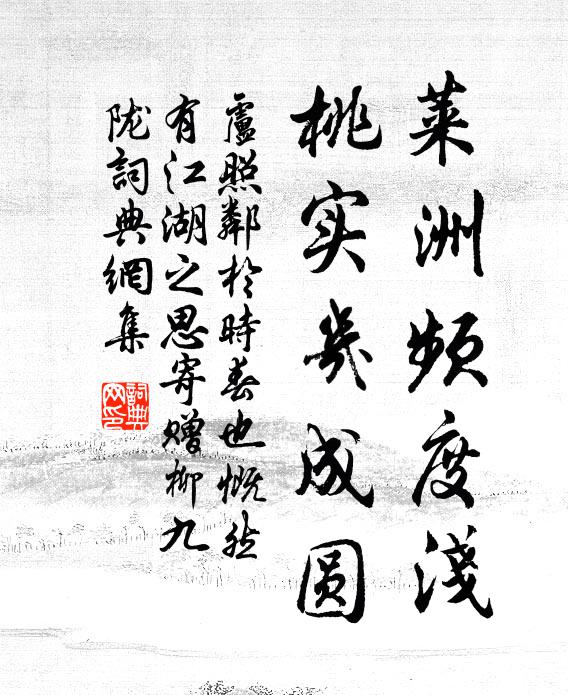 莱洲频度浅
桃实几成圆
盧照鄰於時春也慨然
有江湖之思寄赠柳九
陇詞典網集
詞典网印